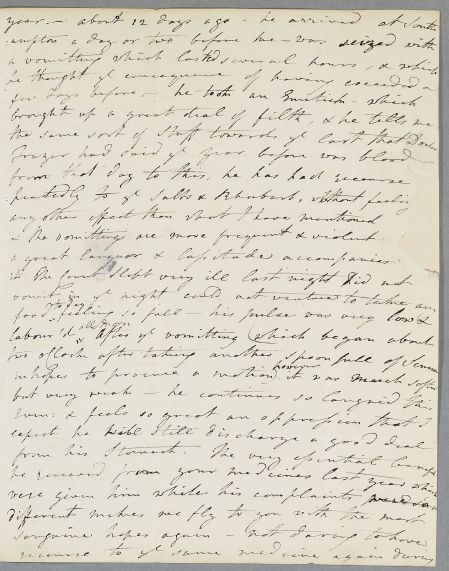 year. - about 12 days ago - he arrived at South
ampton a day or two before me - was seized with
a vomitting which lasted several hours & which
he thought ye consequence of having exceeded a
few days before. - he took an Emetick - which
brought up a great deal of filth, & he tells me
the same sort of stuff towards ye last that Doctor
Frazer had said ye year before was blood
From that day to this, he has had recourse
peatedly to ye Salts & Rhubarb, without feeling
any other effect than what I have mentioned
& the vomittings are more frequent & violent
a great languor & lassitude accompanies
it The Count slept very ill last night did not
vomit in ye night could not venture to take any
food today feeling so full - his pulse was very low &
labour'd all morn after ye vomitting which began about
two oClock after taking another spoon full of Senna
in hopes to procure a motion, it was however much softer
but very weak - he continues so languid this
Even: & feels so great an oppression that I
expect he will still discharge a good deal
from his Stomach. The very essential benefit
he received from your medicines last year which
were given him while his complaints were so
different makes me fly to you with the most
sanguine hopes again - not daring to have
recourse to ye same medicine again